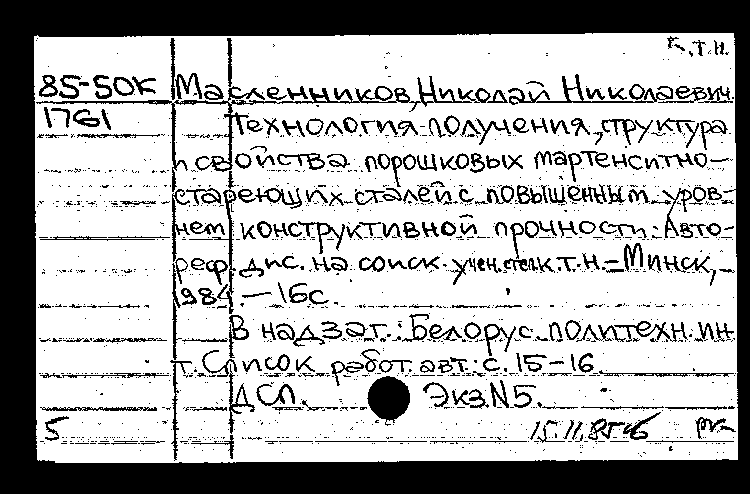 к.т.н.
85-50К Масленников, Николай Николаевич.
1761 Технология получения, структура
и свойства порошковых мартенситно-
стареющих сталей с повышенным уров-
нем конструктивной прочности: Авто-
реф. дис. на соиск. учен. степ. к.т.н. - Минск, -
1984. - 16с.
В надзаг.: Белорус. политехн. ин
-т. Список работ авт.: с. 15-16.
ДСП. Экз.N5.
5 15.11.85